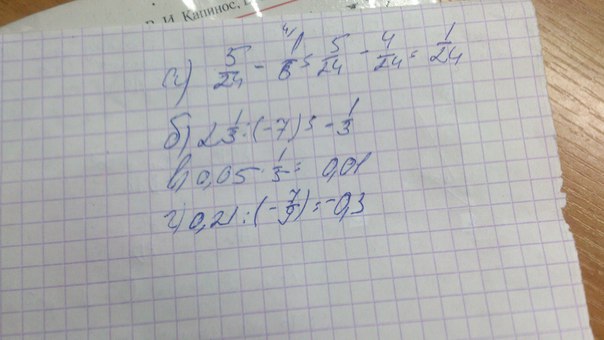 В. И. Капинос,
а) 5/24 - 1/6 = 5/24 - 4/24 = 1/24
б) 2 1/3 : (-7) = -1/3
в) 0,05 · 1/5 = 0,01
г) 0,21 : (-7/9) = -0,3